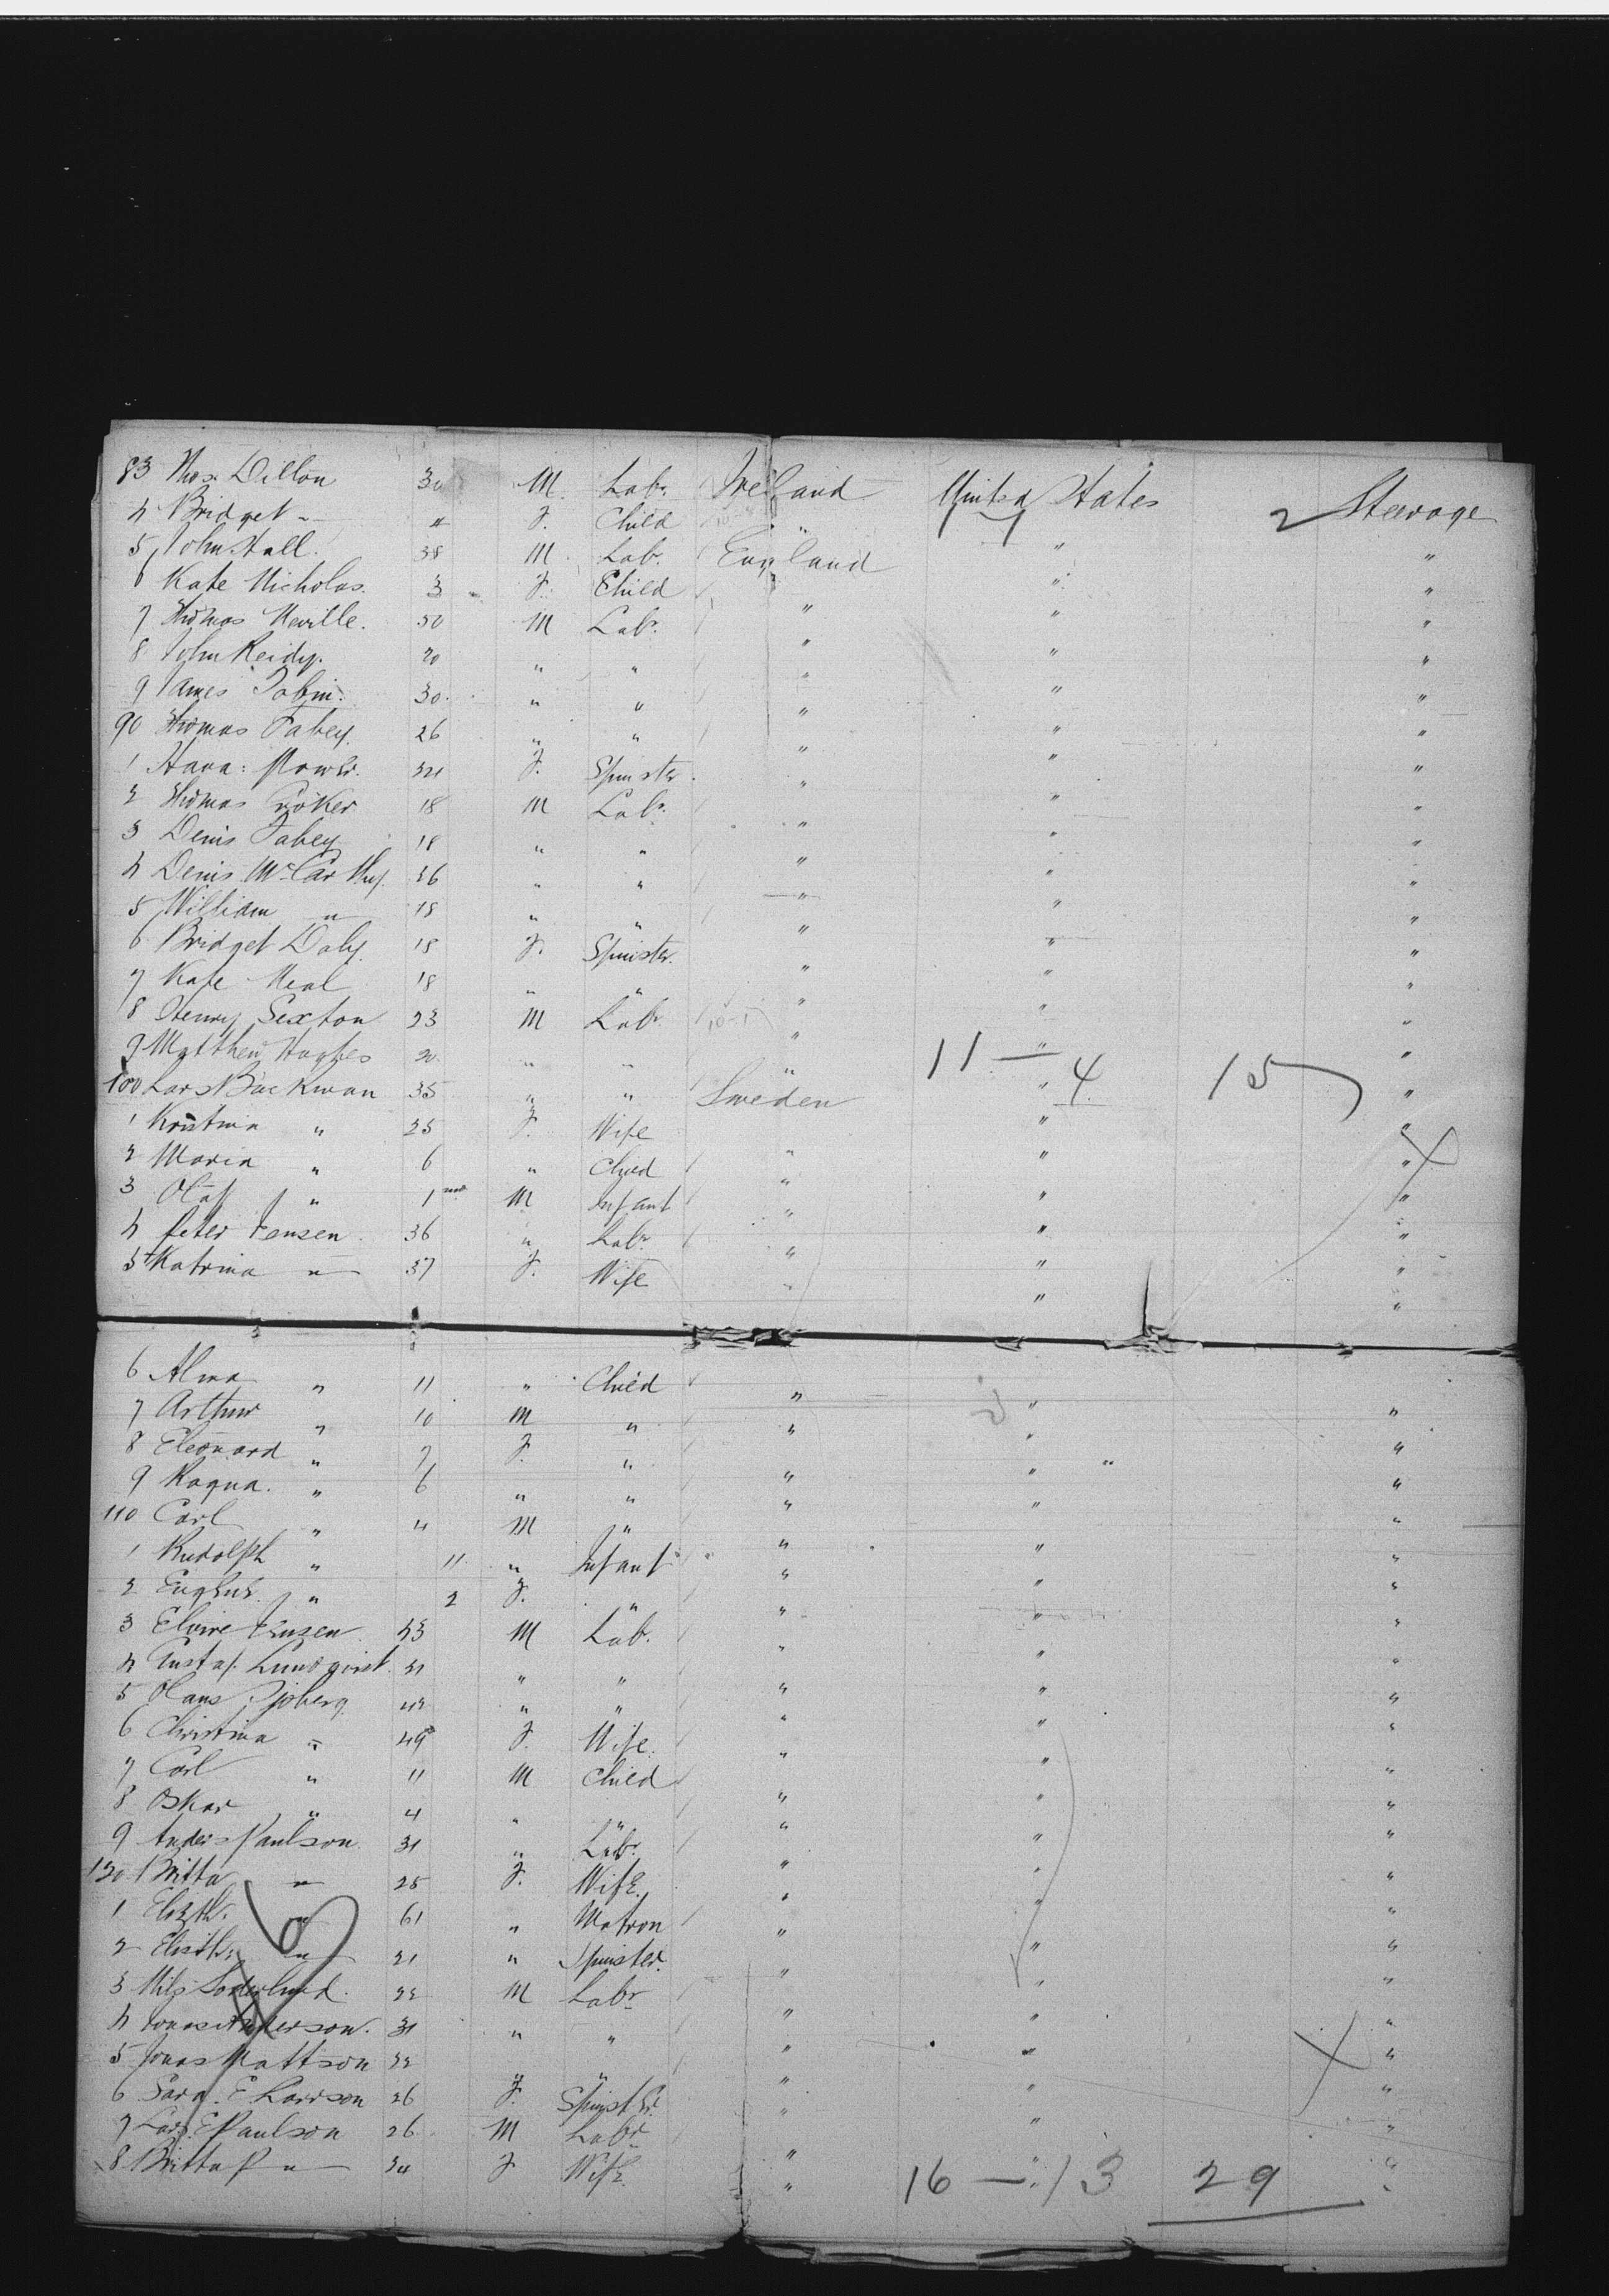 83 Thos. Dillon 30 M. Labr. Ireland United States 2 Steerage
4 Bridget " 4 F. Child " "
5 John Hall. 38 M. Lab. England " "
6 Kate Nicholas. 3 F. Child " " "
7 Thomas Neville. 50 M Labr. " " "
8 John Reidy. 20 " " " " "
9 James Tobin. 30. " " " " "
90 Thomas Fahey. 26 " " " " "
1 Hana: Power. F. Spinster. " " "
2 Thomas Croker 18 M Labr. " " "
3 Denis Fahey 18 " " " " "
4 Denis McCarthy. 26 " " " " "
5 William " 18 " " " " "
6 Bridget Daly. 18 F. Spinster. " " "
7 Kate Neal 18 " " " " "
8 Henry Sexton 23 M Labr. " " "
9 Matthew Hughes 20. " " " " "
11 — 4 15
100 Lars Backman 35 " " Sweden " "
1 Kristina " 25 F. Wife " " "
2 Maria " 6 " Child " " "
3 Olaf " 1 mo M Infant " " "
4 Peter Jensen. 36 " Labr. " " "
5 Katrina " 37 F. Wife " " "
6 Alma " 11 " Child " " "
7 Arthur " 10 M " " " "
8 Eleonard " 7 F. " " " "
9 Ragna. " 6 " " " " "
110 Carl " 4 M " " " "
1 Rudolph " 11 " Infant " " "
2 " 2 F. " " " "
3 Elvire Jensen. 23 M Lab. " " "
4 Gustaf. Lundqvist. " " " " "
5 Hans Sjoberg 42 " " " " "
6 Christina " 49 F. Wife. " " "
7 Carl " 11 M Child " " "
8 Oskar " 4 " " " " "
9 Anders Paulson. 31 " Labr. " " "
120 Britta " 25 F. Wife. " " "
1 Elizth. " 61 " Matron " " "
2 " 21 " Spinster. " " "
3 Nils Soderlund. 22 M Labr " " "
4 Jonas Anderson. 31 " " " " "
5 Jonas Mattson 22 " " " " "
6 Sara. E Larrson 26 F. Spinster. " " "
7 Lars. E Paulson 26 M Labr " " "
8 Britta P " F Wife. " " "
16 — 13 29